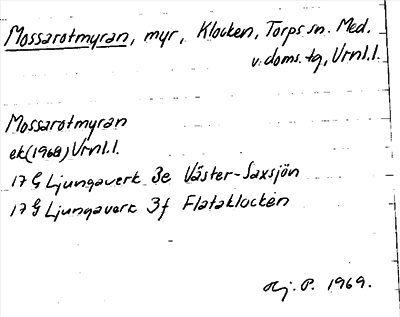 Mossarotmyran, myr, Klocken, Torps sn. Med.
v. doms. tg, Vrnl.l.
Mossarotmyran
ek(1968) Vrnl.l.
17 G Ljungaverk 3e Väster-Saxsjön
17 G Ljungaverk 3f Flataklocken
Hj. P. 1969.